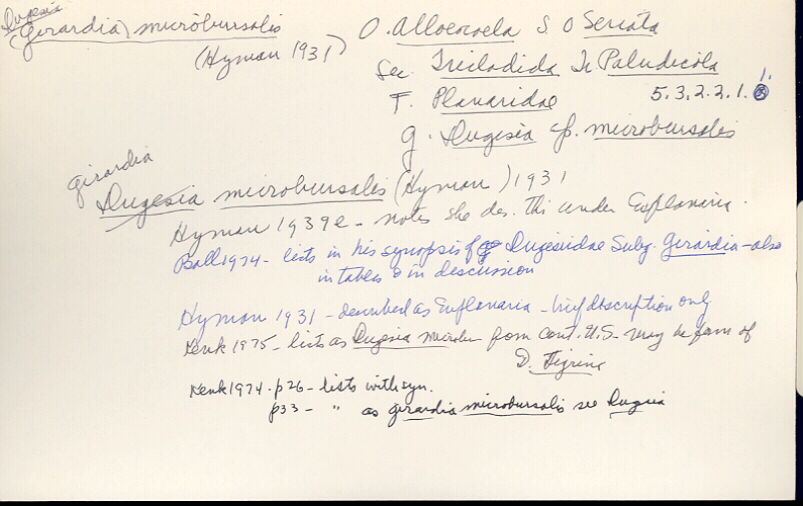 Dugesia
(Girardia) microbursalis
(Hyman 1931)
O. Alloeocoela S. O Seriata
Sec. Tricladida Tr Paludicola
F. Planaridae 5.3.2.2.1. 1.
g. Dugesia sp. microbursalis
Girardia
Dugesia microbursalis (Hyman) 1931
Hyman 1939e - notes she des. this under Euplanaria.
Ball 1974 - lists in his synopsis of Dugesiidae Subg. Girardia - also
in tables & in descussion
Hyman 1931 - described as Euplanaria - brief description only
Kenk 1975 - lists as Dugesia from cont. U.S. - may be form of
D. tigrina
Kenk 1974 - p26 - lists with syn.
p33 - " as Girardia microbursalis see Dugesia